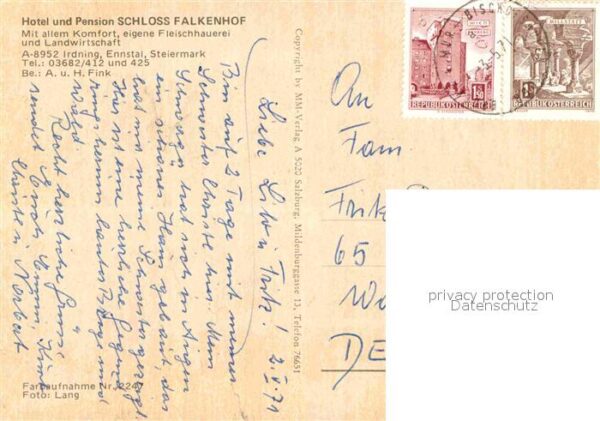 Hotel und Pension SCHLOSS FALKENHOF
Mit allem Komfort, eigene Fleischhauerei
und Landwirtschaft
A-8952 Irdning, Ennstal, Steiermark
Tel.: 03682/412 und 425
Be.: A. u. H. Fink
2. V. 71
Liebe Libi u. Fritz!
Bin auf 2 Tage mit meiner
Schwester Christl hier. Mein
Schwager hat sich in Aigen
ein schönes Haus gebaut, das
hat mir meine Schwester gezeigt.
Hier ist eine herrliche Gegend
ringsherum lauter Berge und
Wald.
Recht herzliche Grüsse
sendet Euch
Christl Norbert
Farbaufnahme Nr. 2247
Foto: Lang
Copyright by MM-Verlag A 5020 Salzburg, Mildenburggasse 13, Telefon 76651
An
Fam
Fritz
65
DE
REPUBLIK ÖSTERREICH
1.50
MILLSTATT
REPUBLIK ÖSTERREICH
privacy protection
Datenschutz